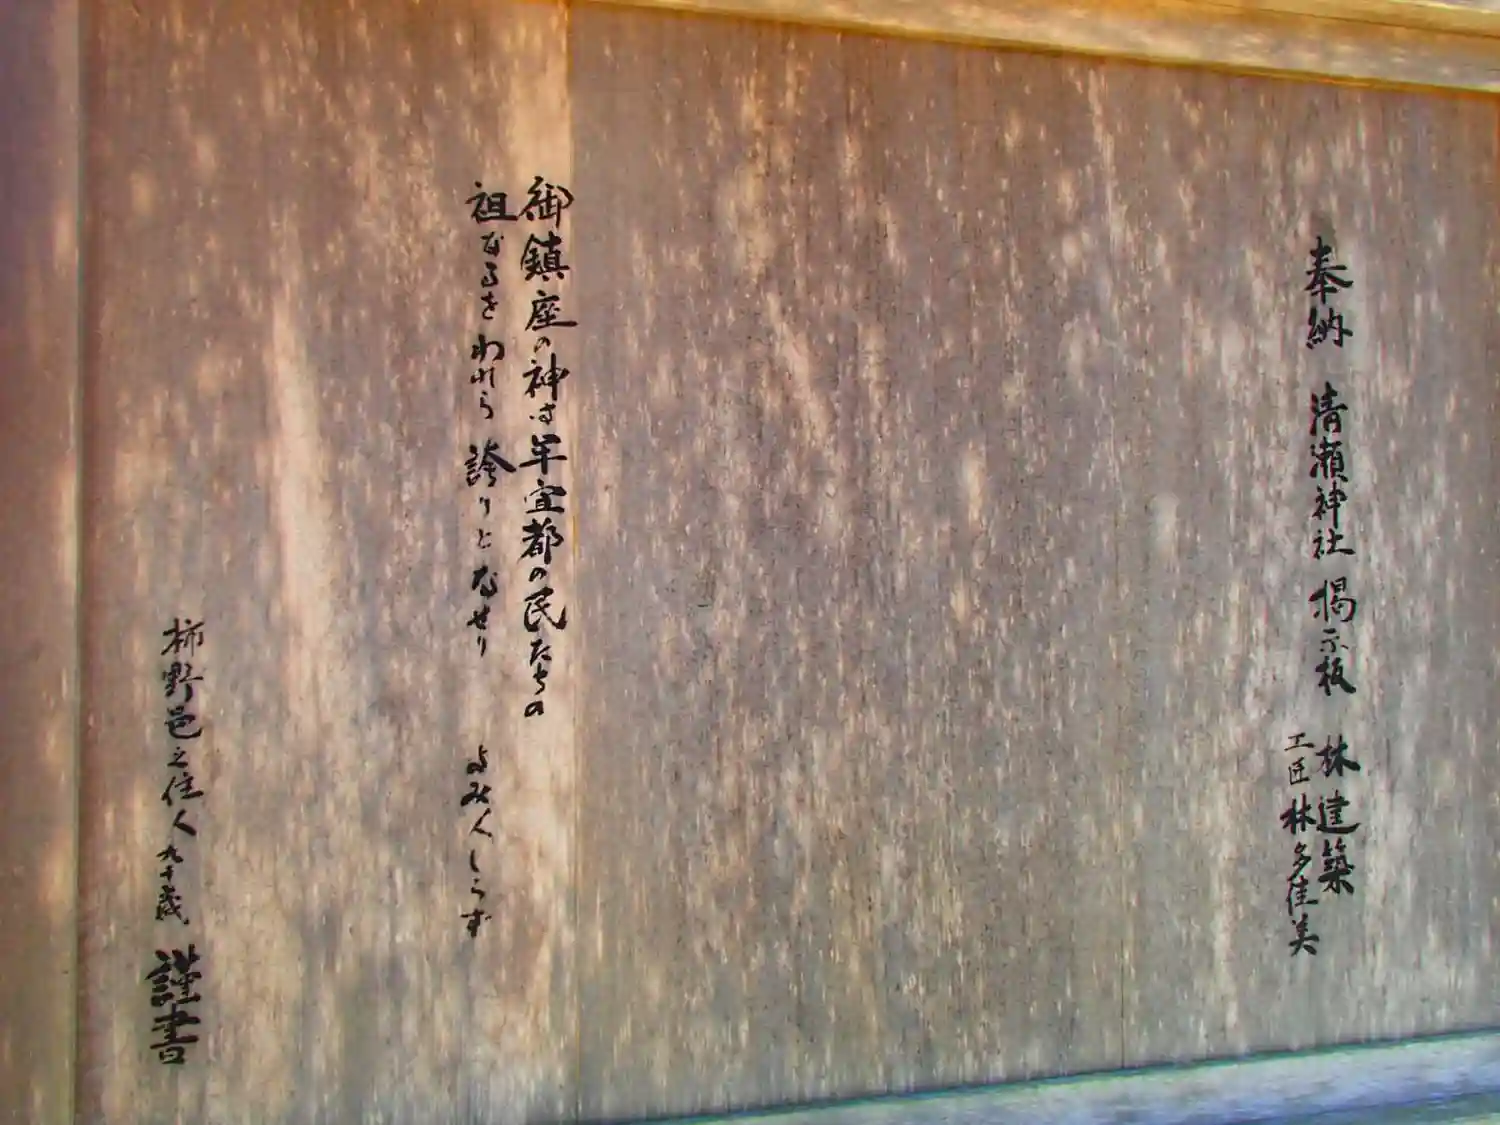 奉納 清瀬神社 掲示板 林建築
工匠 林多佳美
御鎮座の神は牟宜都の民たちの
祖なるをわれら誇りとなせり よみ人しらず
柿野邑之住人九十歳 謹書